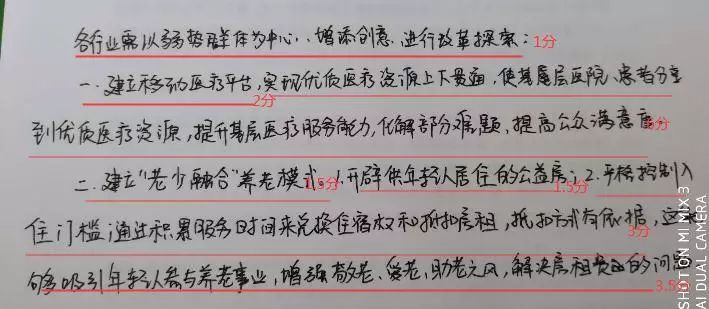 各行业需以弱势群体为中心、增添创意、进行改革探索： 1分
一、建立移动医疗平台，实现优质医疗资源上下贯通，使基层医院、患者分享 2分
到优质医疗资源，提升基层医疗服务能力，化解部分难题，提高公众满意度。 分
二、建立“老少融合”养老模式。1.开辟供年轻人居住的公益房；2.严格控制入 1.5分 1.5分
住门槛；通过积累服务时间来兑换住宿权和抵扣房租，抵扣方式有依据，这 3分
够吸引年轻人参与养老事业，增强敬老、爱老、助老之风，解决房租贵的问题 3.5分
SHOT ON MI MIX 3
AI DUAL CAMERA